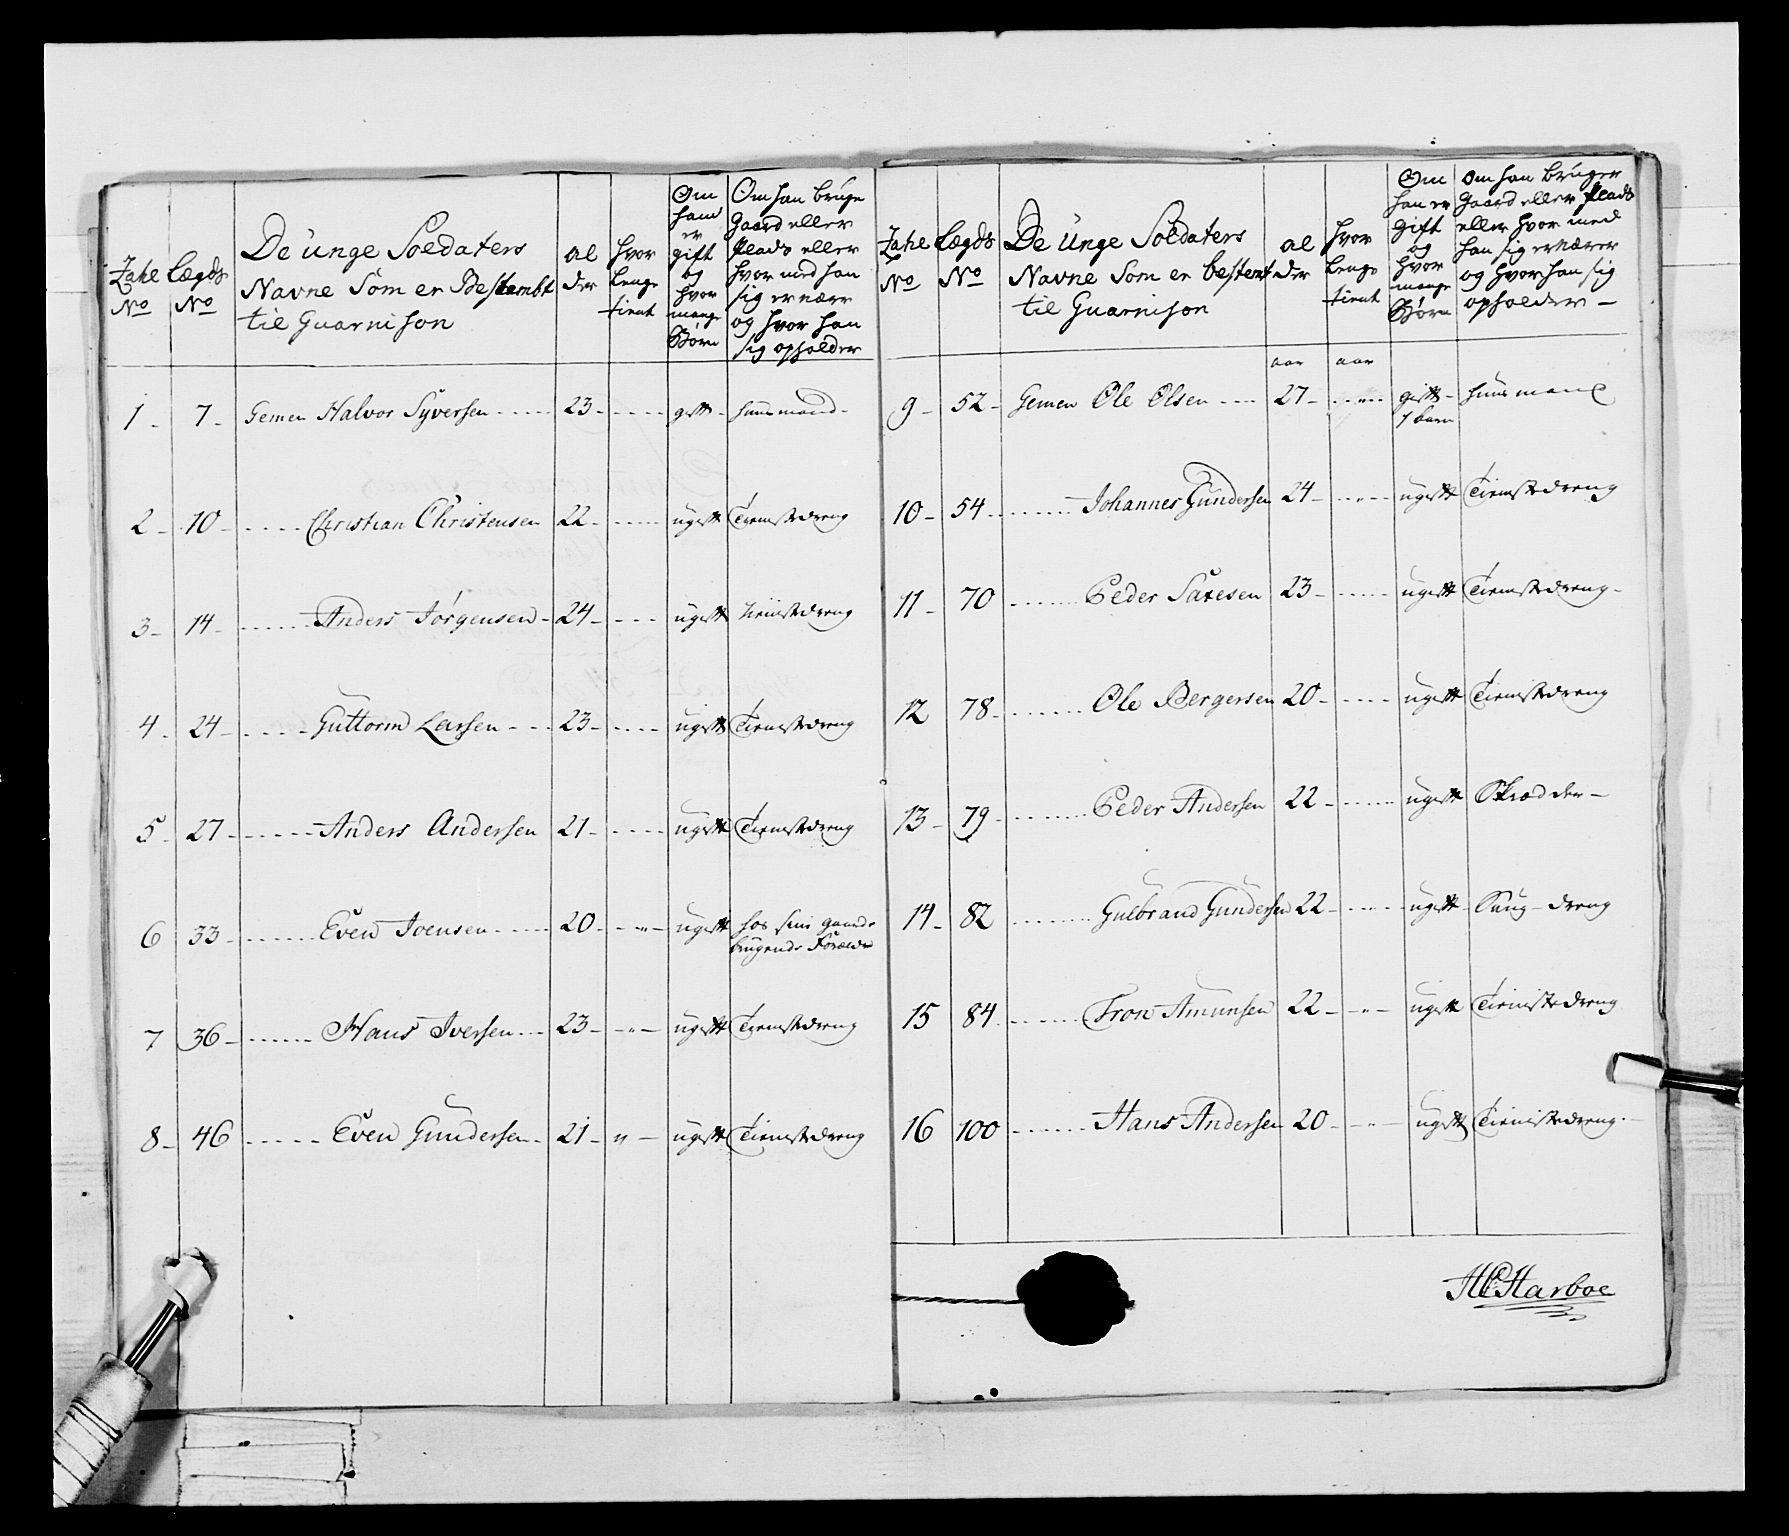 Zahl No
Lægds No
De unge Soldaters
Navne Som er Bestembt
til Guarnison
al
der
hvor
lenge
tient
Om
hand
er
gift
og
hvor
mange
Børn
Om han bruge
Gaard eller
Plads eller
hvor med han
sig ernære
og hvor han
sig opholder
1 - 7 - Gemen Halvor Syversen 23 - gift - huusmand -
2 - 10 - Christian Christensen 22 - ugift Tienistedreng
3 - 14 - Anders Jørgensen - 24 - ugift tienistedreng
4 - 24 - Guttorm Larsen 23 - ugift Tienistedreng
5 - 27 - Anders Andersen 21 - ugift Tienistedreng
6 33 - Even Joensen 20 - " - ugift hos sine gaard
brugende Forældre
7 36 - Hans Iversen 23 - " - ugift Tienistedreng
8 - 46 Even Gundersen - 21 - " - ugift Tienistedreng
Zahl No
Lægds No
De Unge Soldaters
Navne Som er bestemt
til Guarnison
al
der
hvor
lenge
tient
Om
han er
gift
og
hvor
mange
Børn
Om han bruger
Gaard eller Plads
eller hvor med
han sig ernærer
og hvor han sig
opholder -
aar aar
9 - 52 - Gemen Ole Olsen 27 - " - gift - huusmand
1 barn
10 - 54 Johannes Gundersen 24 - " - ugift Tienistedreng
11 - 70 Peder Saxesen 23 - ugift Tienistedreng -
12 78 - Ole Bergersen 20 - ugift Tienistedreng
13 - 79 - Peder Andersen 22 - ugift Skrædder -
14 - 82 Gulbrand Gundersen 22 - " - ugift dreng
15 84 Tron Amunsen 22 - " - ugift Tienistedreng
16 100 Hans Andersen 20 - " - ugift Tienistedreng -
HC Harboe